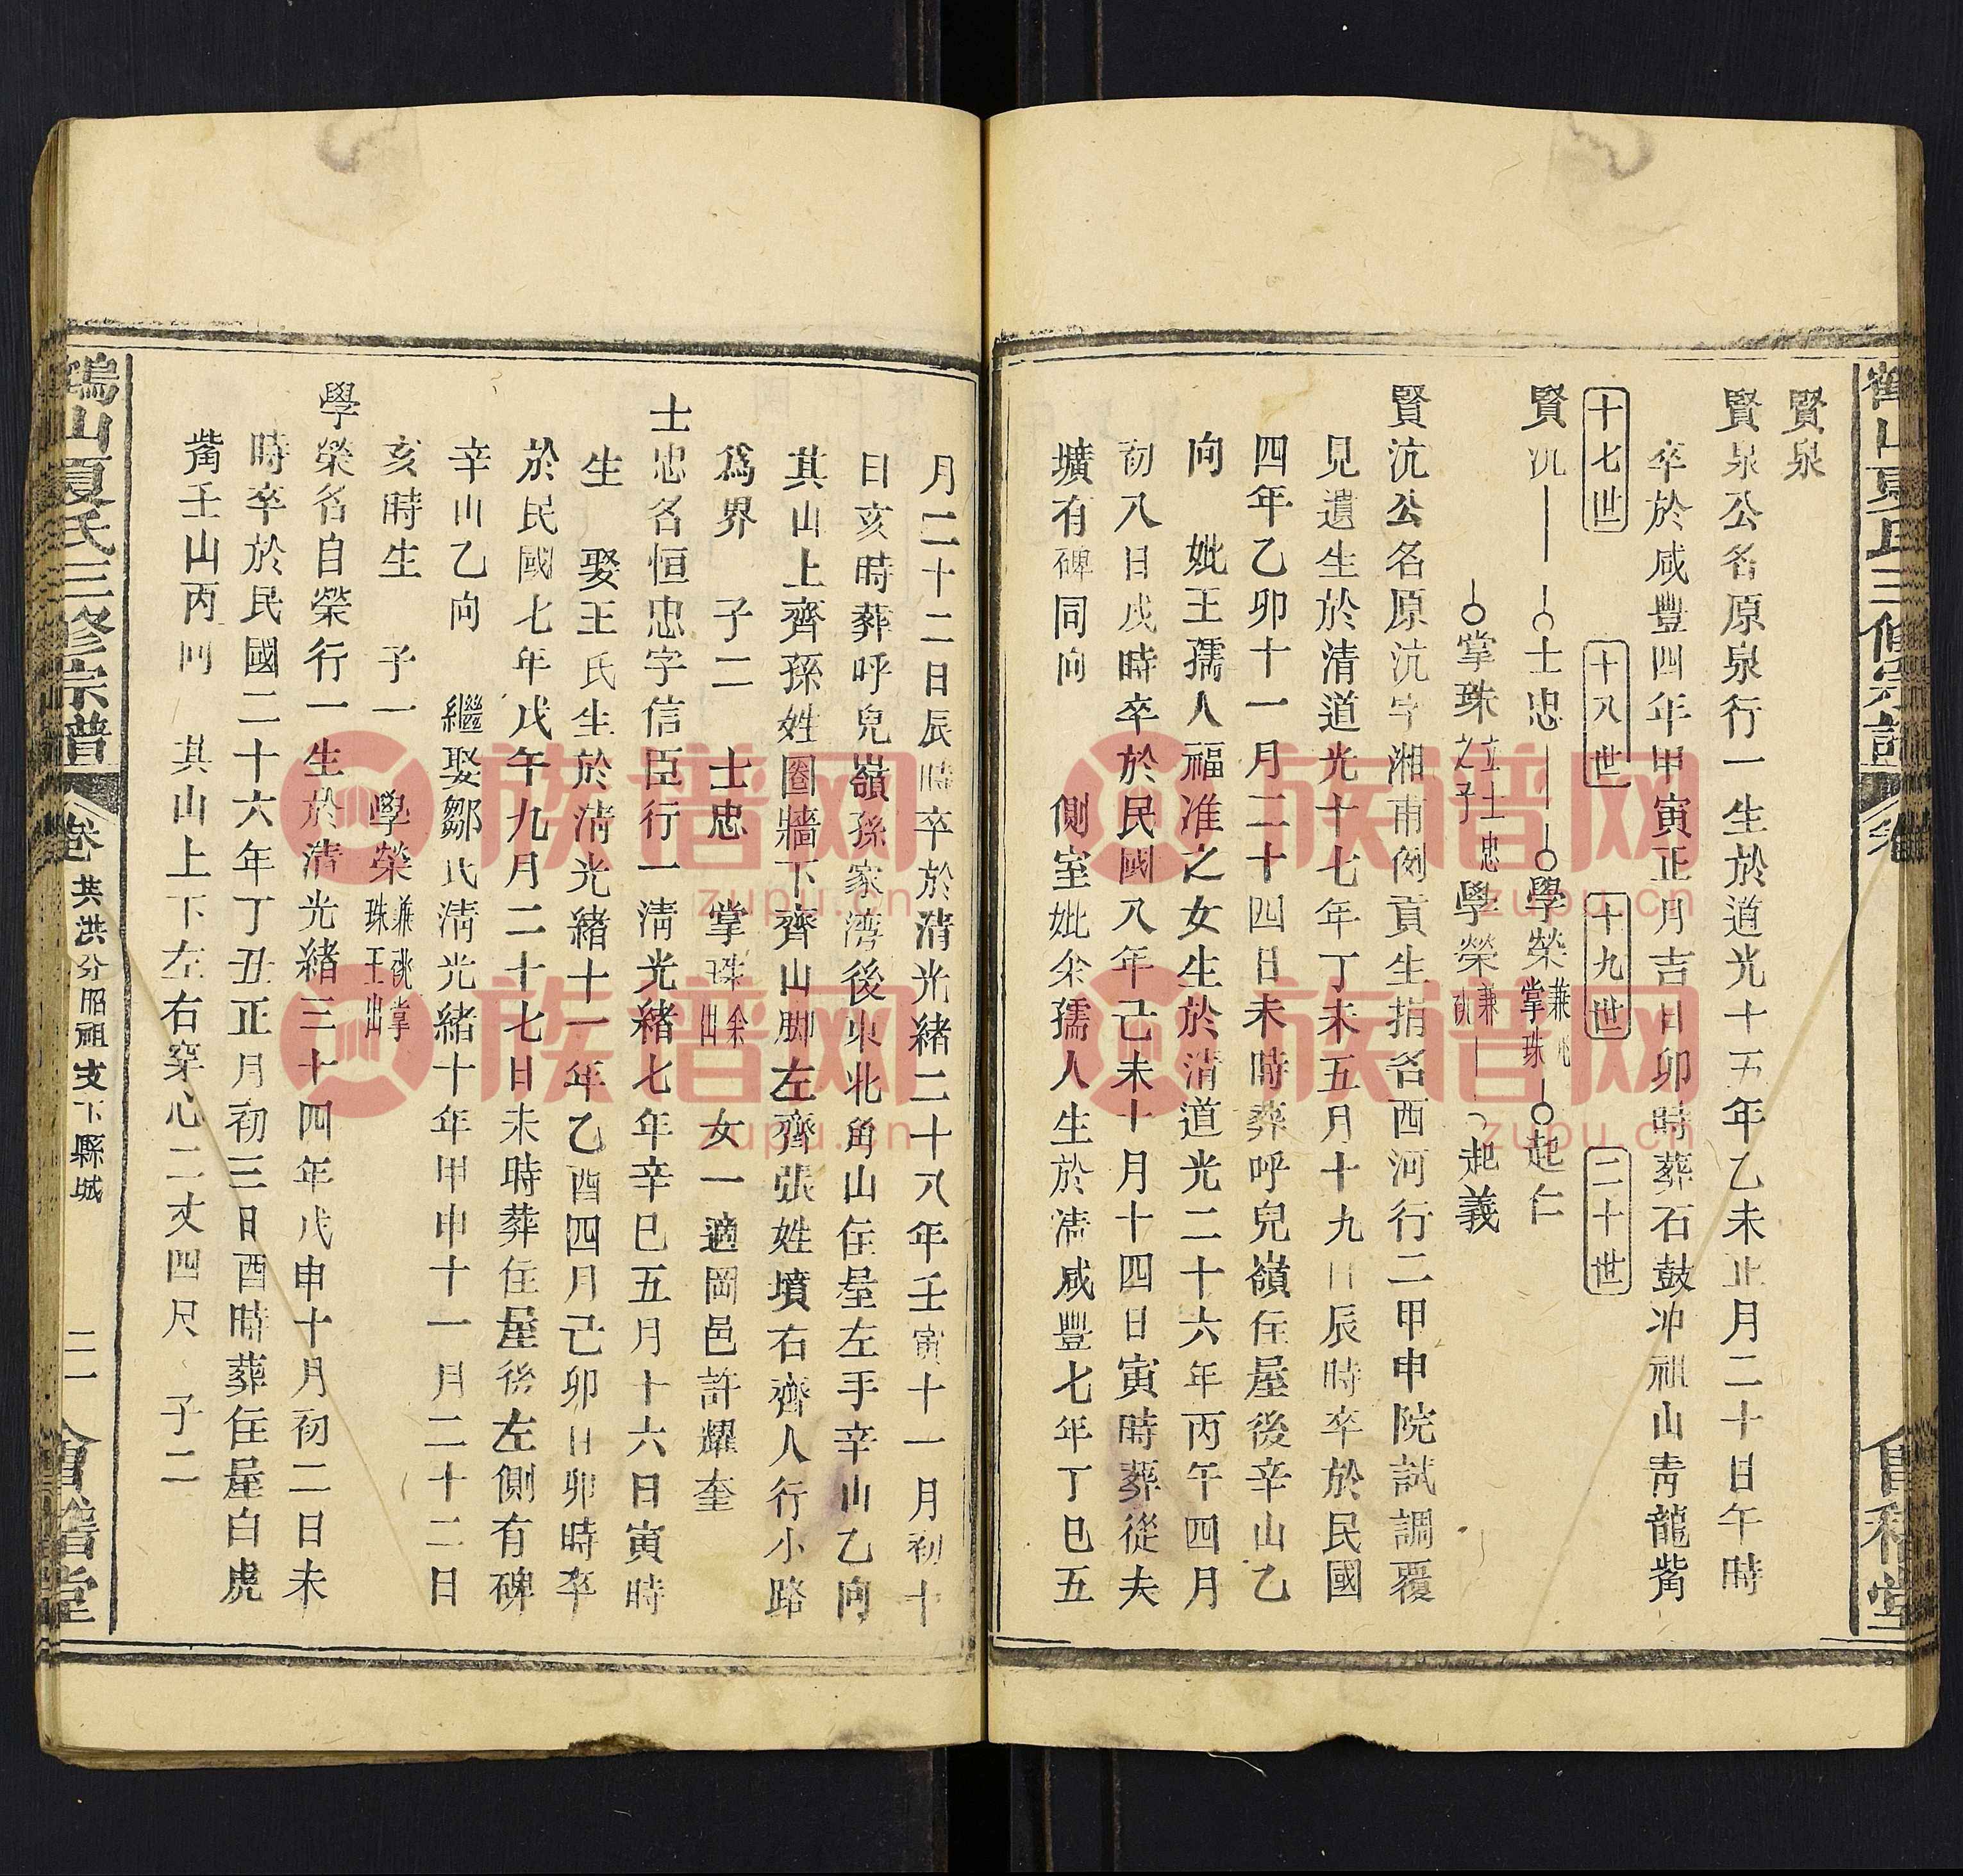 賢泉
賢泉公名原泉行一生於道光十五年乙未正月二十日午時
卒於咸豐四年甲寅正月吉日卯時葬石鼓冲祖山青龍嘴
十七世 十八世 十九世 二十世
賢沆 士忠 學榮 兼祧掌珠 起仁
掌珠 立士忠之子 學榮 兼祧 起義
賢沆公名原沆字湘甫例貢生捐名西河行二甲申院試調覆
見遺生於清道光十七年丁未五月十九日辰時卒於民國
四年乙卯十一月二十四日未時葬呼兒嶺住屋後辛山乙
向 妣王孺人福准之女生於清道光二十六年丙午四月
初八日戌時卒於民國八年己未十月十四日寅時葬從夫
壙有碑同向 側室妣余孺人生於清咸豐七年丁巳五
月二十二日辰時卒於清光緒二十八年壬寅十一月初十
日亥時葬呼兒嶺孫家湾後東北角山住屋左手辛山乙向
其山上齊孫姓園牆下齊山脚左齊張姓墳右齊人行小路
爲界 子二 士忠 掌珠 余出 女一適岡邑許耀奎
士忠名恒忠字信臣行一清光緒七年辛巳五月十六日寅時
生 娶王氏生於清光緒十一年乙酉四月己卯日卯時卒
於民國七年戊午九月二十七日未時葬住屋後左側有碑
辛山乙向 繼娶鄒氏清光緒十年甲申十一月二十二日
亥時生 子一 學榮 兼祧掌珠王出
學榮名自榮行一生於清光緒三十四年戊申十月初二日未
時卒於民國二十六年丁丑正月初三日酉時葬住屋白虎
嘴壬山丙向 其山上下左右穿心二丈四尺 子二
鶴山夏氏三修宗譜 卷 共洪分昭祖支下縣城 二一 會稽堂
族谱网
zupu.cn
族谱网
zupu.cn
族谱网
zupu.cn
族谱网
zupu.cn